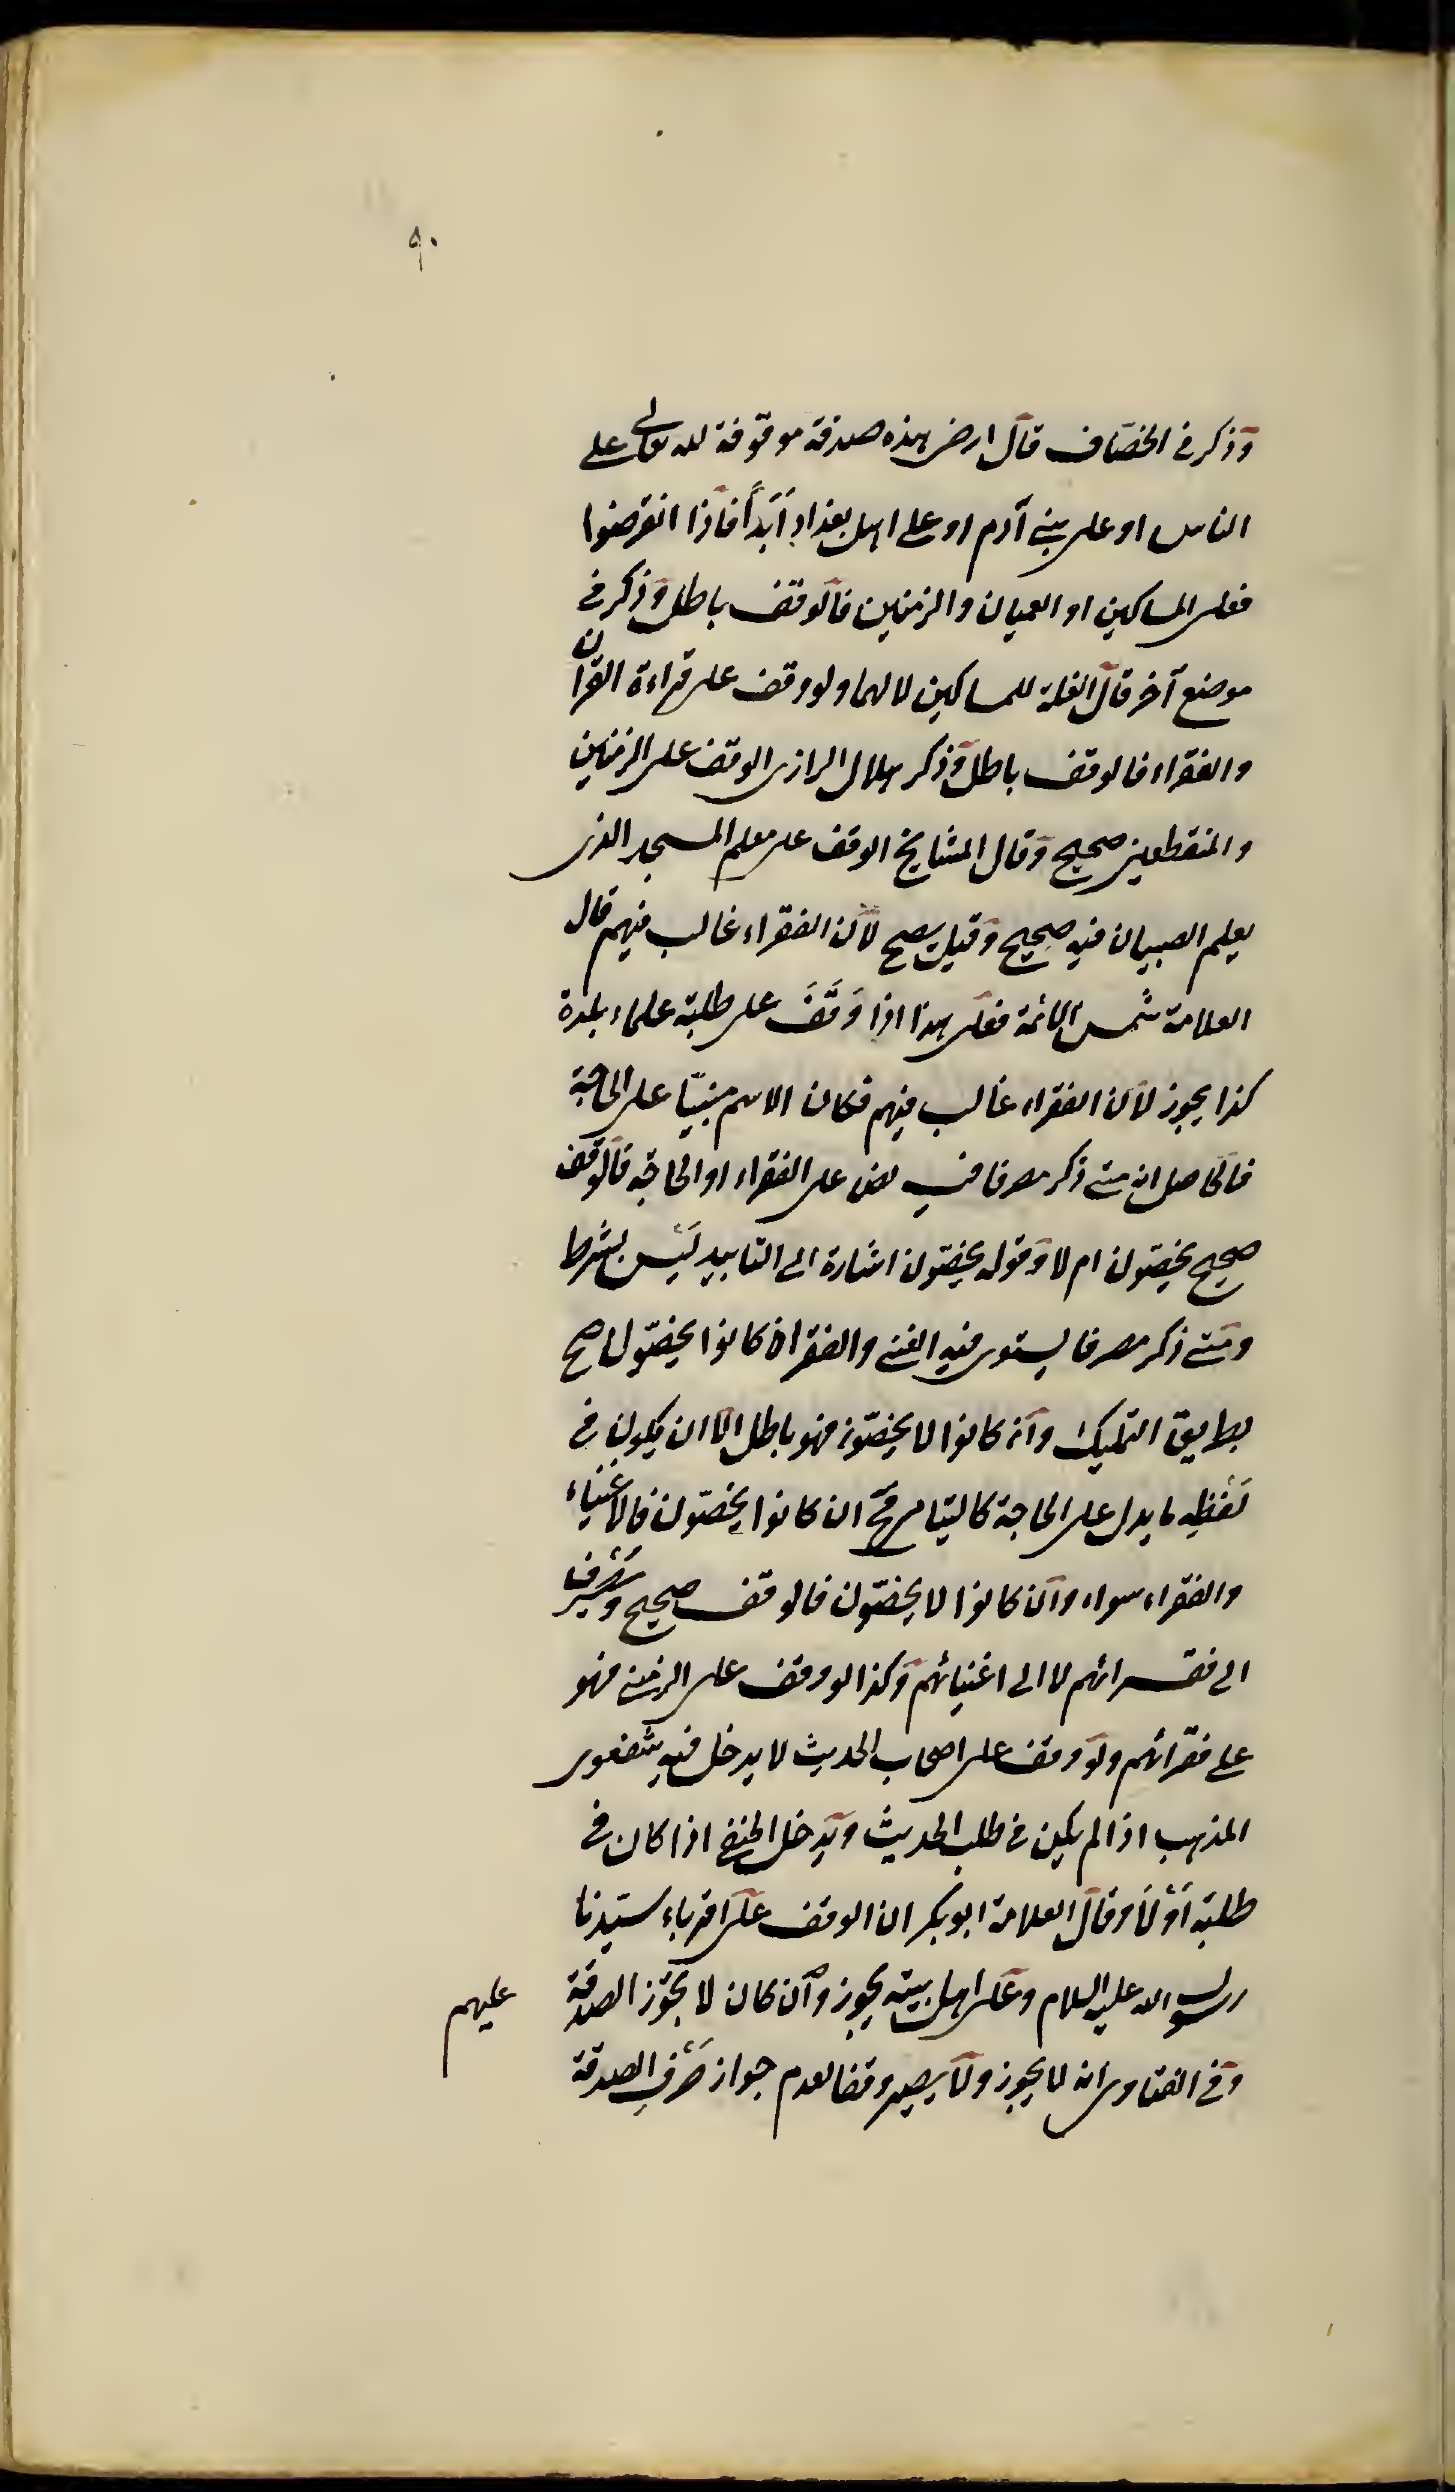 ٩٠
وذكر في الخصّاف قال ارض هذه صدقة موقوفة لله تعالى على
الناس او على بني آدم او على اهل بغداد اَبَداً فاذا انقرضوا
فعلى المساكين او العميان والزمنين فالوقف باطل وذكر في
موضع آخر قال الغلة للمساكين لا لهما ولو وقف على قراءة القرآن
والفقراء فالوقف باطل وذكر هلال الرازى الوقف على الزمنين
والمنقطعين صحيح وقال المشايخ الوقف على معلم المسجد الذى
يعلم الصبيان فيه صحيح وقيل يصح لأن الفقراء غالب فيهم قال
العلامة شمس الائمة فعلى هذا اذا وَقَفَ على طلبة علماء بلدة
كذا يجوز لأن الفقراء غالب فيهم فكان الاسم مبنيّا على الحاجة
فالحاصل ان متى ذكر مصرفا فيه نص على الفقراء او الحاجة فالوقف
صحيح يخصّون ام لا وقوله يخصّون اشارة الى التابيد لَيْس بشرط
ومتى ذكر مصرفا يستوى فيه الغنى والفقراء ان كانوا يخصّون صح
بطريق التمليك وان كانوا لا يخصّون فهو باطل الّا ان يكون في
لَفْظِه ما يدل على الحاجة كاليتامى فح ان كانوا يخصّون فالاَغْنياء
والفقراء سواء وان كانوا لا يخصّون فالوقف صحيح ويُصْرف
الى فقرائهم لا الى اغنيائهم وكذا لو وقف على الزمنى فهو
على فقرائهم ولو وقف على اصحاب الحديث لا يدخل فيه شفعوى
المذهب اذا لم يكن في طلب الحديث ويدخل الحنفى اذا كان في
طلبة اَوْلَا وقال العلامة ابو بكر ان الوقف على اقرباء سيّدنا
رسول الله عليه السلام وعلى اهل بيته يجوز وان كان لا يجوّز الصدقة عليهم
وفى الفتاوى انه لا يجوز ولا يصير وقفا لعدم جواز صَرْفِ الصدقة